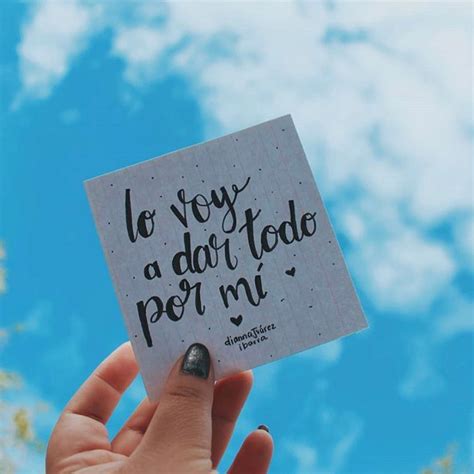 lo voy
a dar todo
por mí
diannaJuárez
ibarra